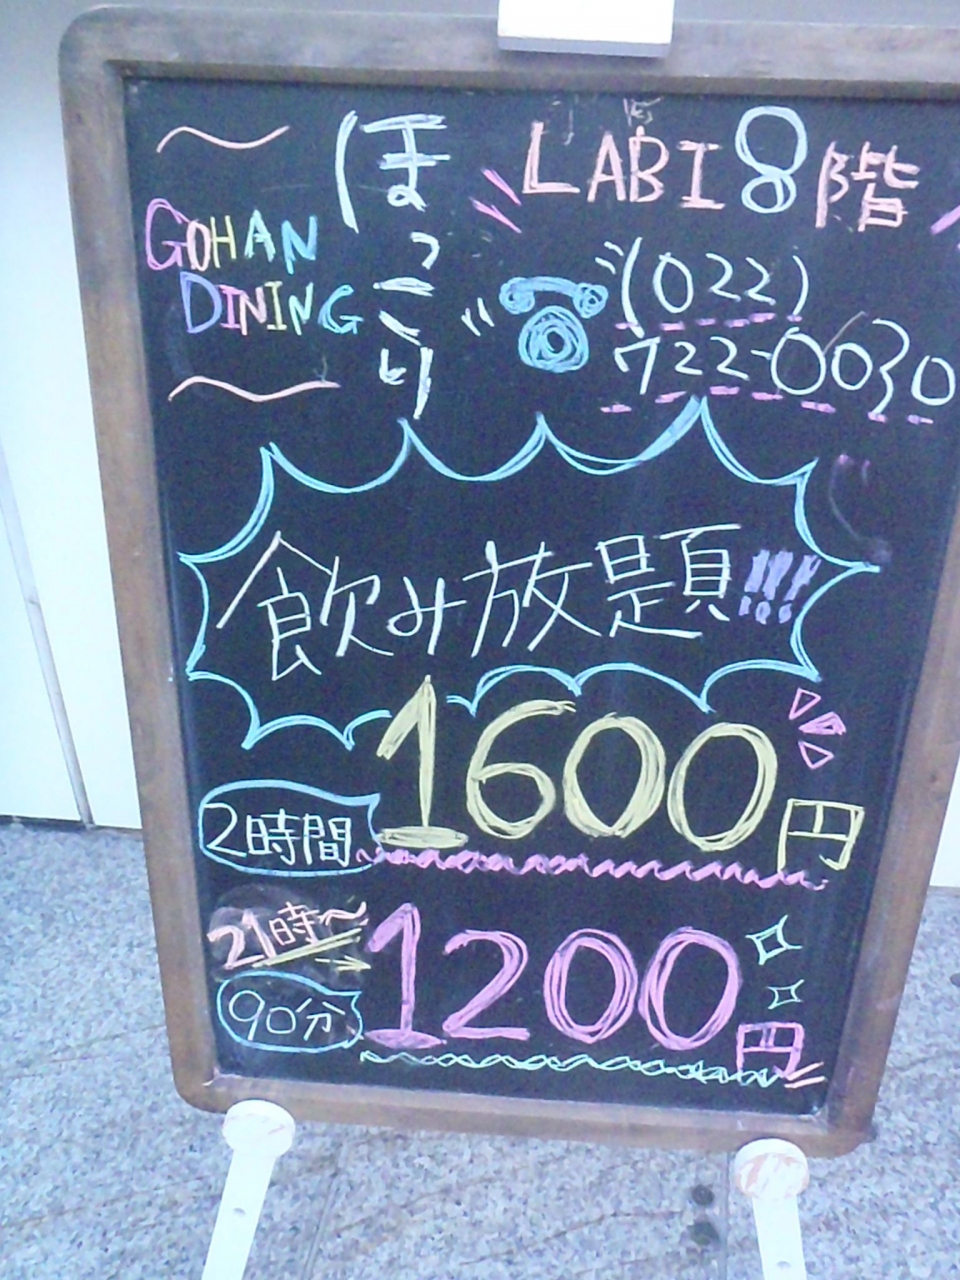 〜
GOHAN
DINING
〜
ほっこり
LABI 8階
(022)
722-0030
飲み放題!!!
2時間
1600円
21時〜
90分
1200円